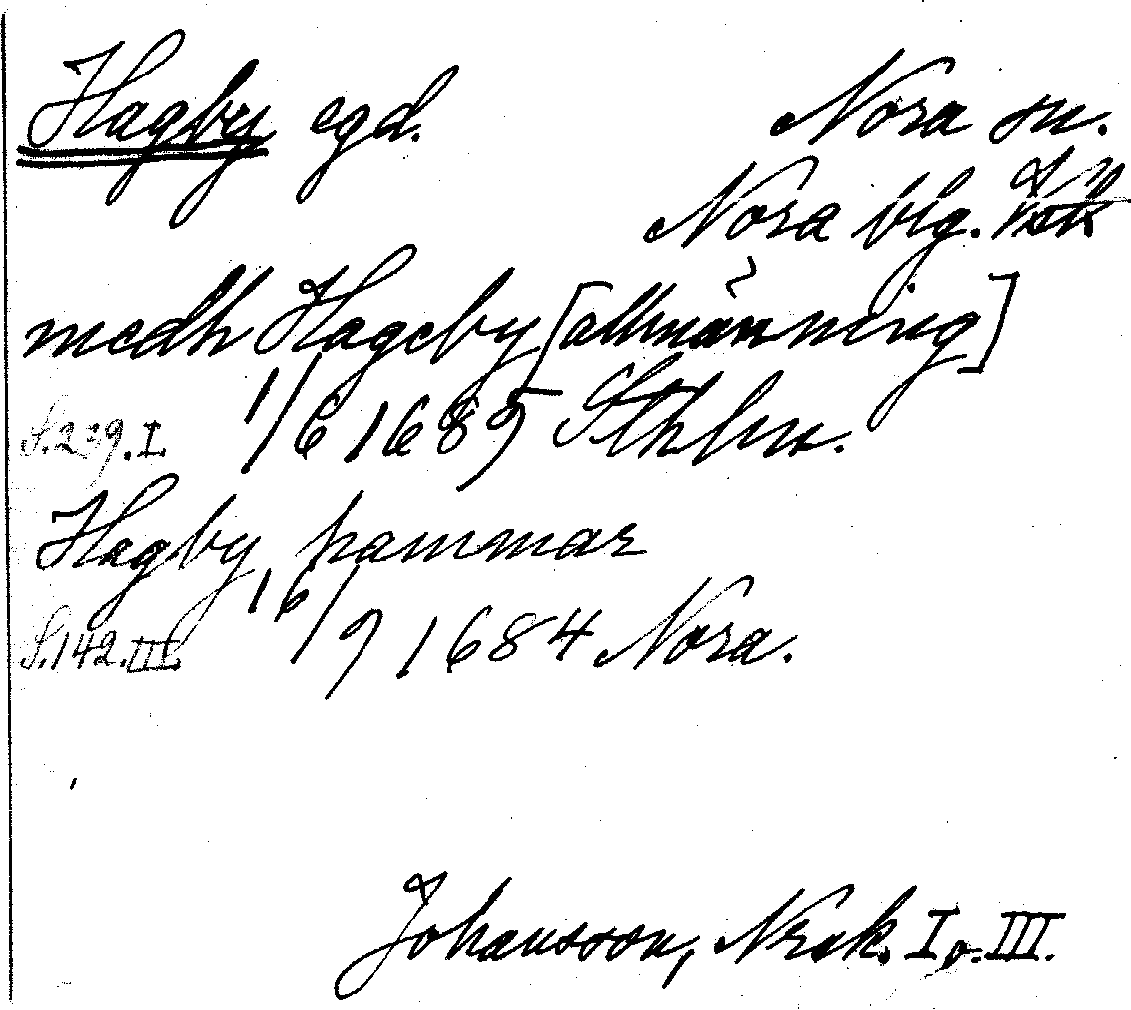 Hagby egd. Nora sn.
Nora blg.
medh Hageby [allmänning]
S.239.I. 1/6 1689 Sthlm.
Hagby hammar
S.142.III. 16/9 1684 Nora.
Johansson, Nrsk. I o. III.